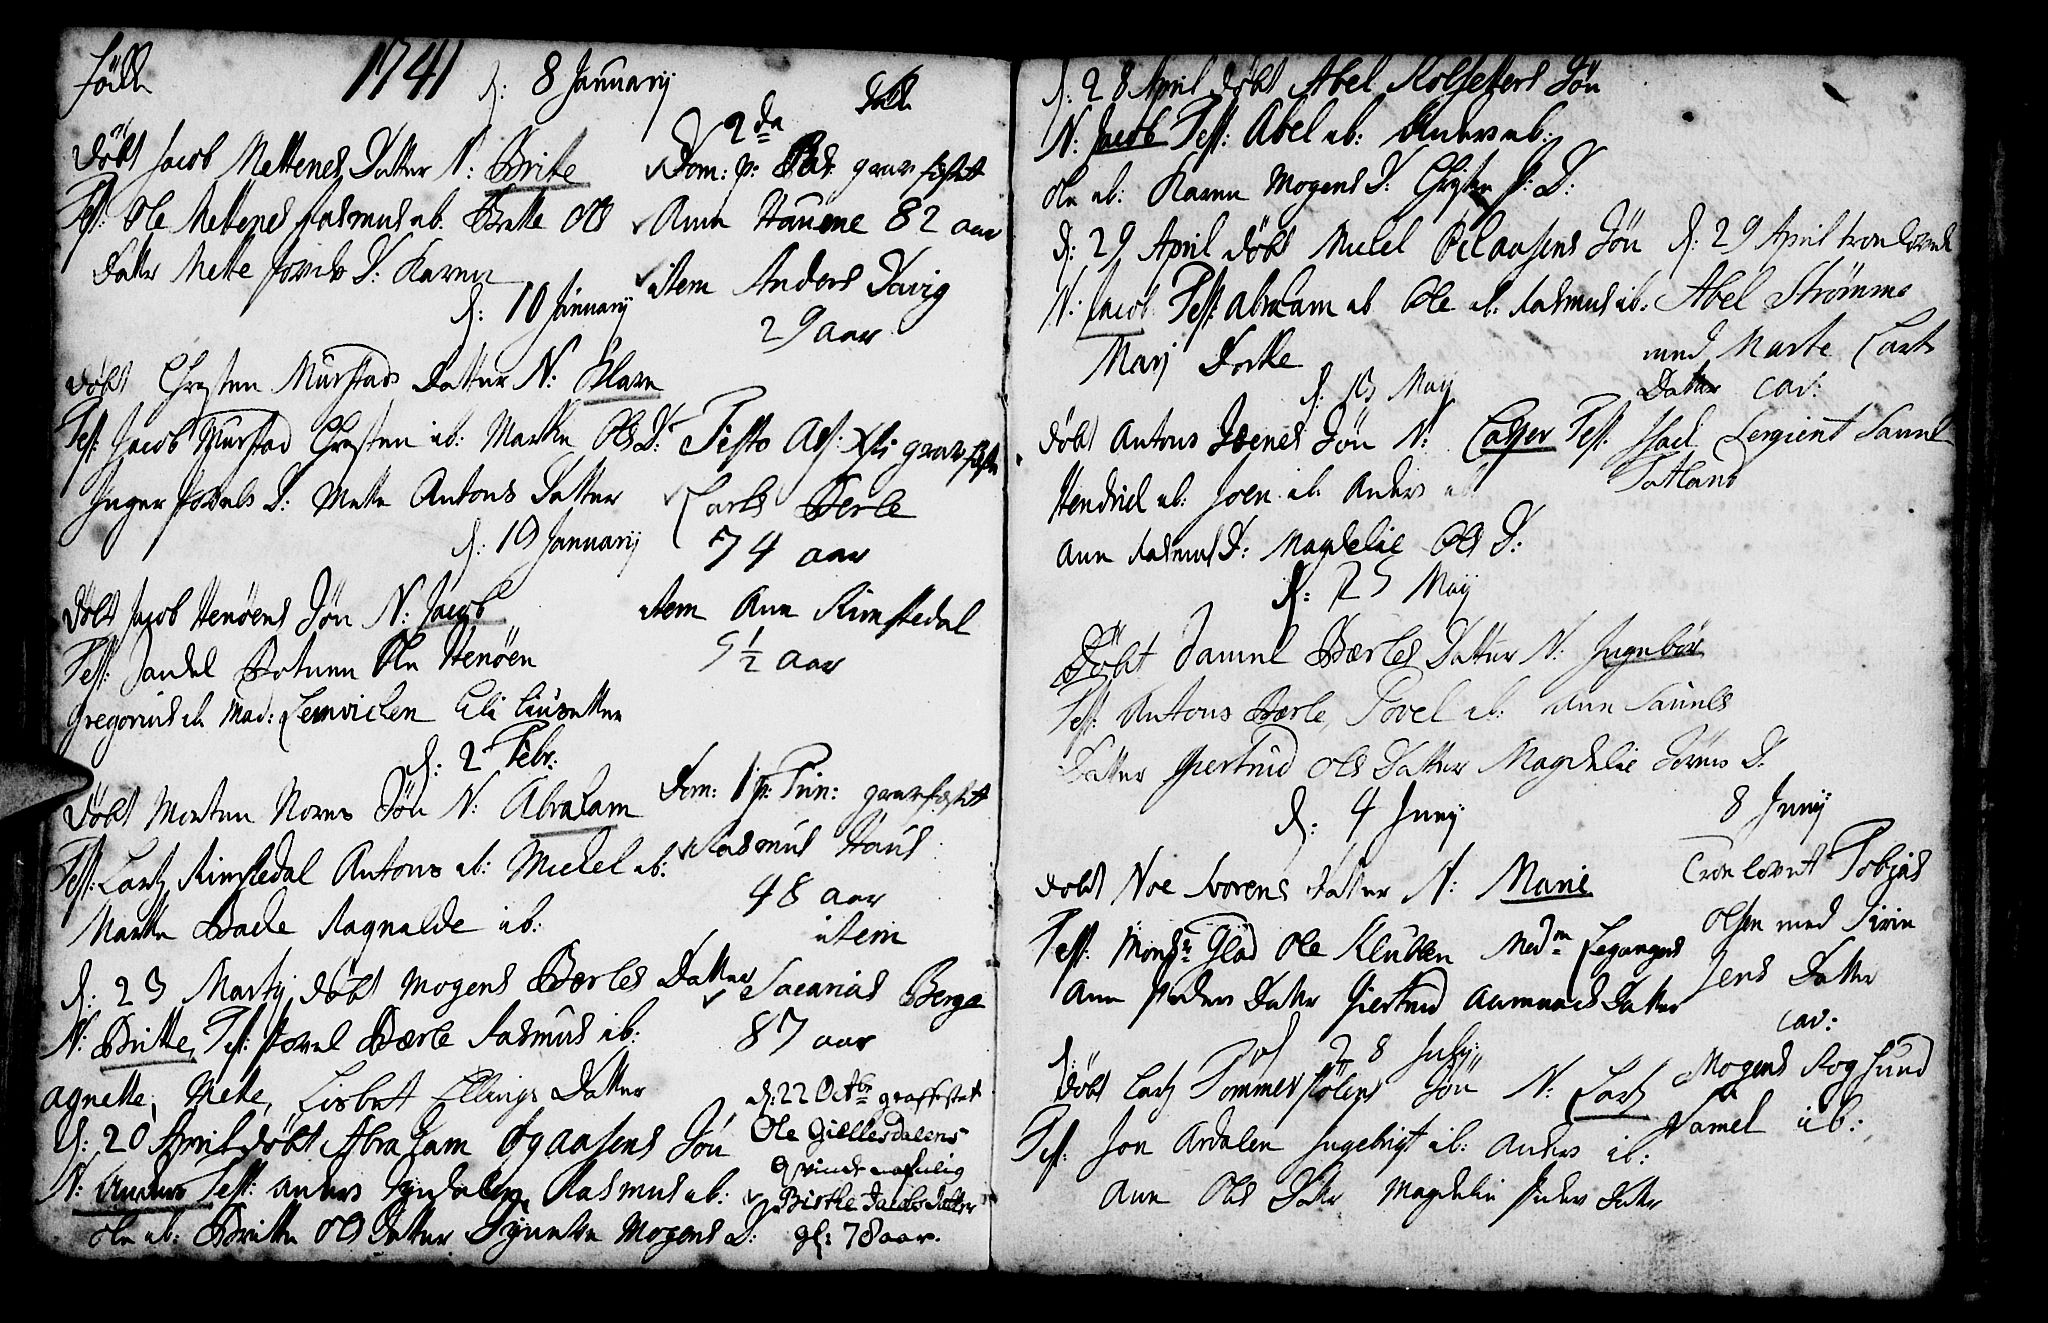 Födde
1741
d: 8 Januarij
döbt Jacob Mettenes Datter N: Britte
Test: Ole Mettenes Rasmus ib. Britte Ols
Datter Mette Jovels D: Karen
d: 10 Januarij
döbt Chresten Murstads Datter N:
Test: Jacob Murstad Chresten ib: Marthe Ols D:
Inger Povels D: Mette Antons Datter
d: 19 Januarij
döbt Jacob Henöens Sön N: Jacob
Test: Botnen Ole Henöen
Gregorius ib Mad: Lemvichen Eli
d: 2 Febr:
döbt Morten Nores Sön N: Abraham
Test: Lartz Rimstedal Antons ib: Michel ib:
Marthe Ragnalde ib:
d: 23 Martij döbt Mogens Bærles Datter
N: Britte, Test: Povel Bærle Rasmus ib:
Agnette, Mette, Lisbet Ellings Datter
d: 20 April döbt Abraham Sön
N: Anders Test: Anders Rasmus ib:
Ole ib: Britte Ols Datter Mogens D:
Döde
2da
Dom: p: Pas: gravfestet
Ann Hauene 82 aar
item Anders Davig
29 aar
Festo Asc: Xsti gravfestet
Lartz Berle
74 aar
item Ann Rimstedal
5 1/2 aar
Dom: 1 p: Trin: gravfestet
Rasmus Haus
48 aar
item
Sacarias Berge
87 aar
d: 22 Octbr graffestet
Ole Giellesdalens
Qvinde nafnlig
Birthe Jacobs Datter
gl: 78 aar.
d: 28 April döbt Abel Rolsetters Sön
N: Jacob Test: Abel ib: Anders ib:
Ole ib: Karen Mogens D: P: D:
d: 29 April döbt Michel Sön
N: Jacob Test: Abraham ib Ole ib: Rasmus ib:
Mari Dorthe
d: 13 May
döbt Antons Sön N: Casper Test:
Hendrich ib: Joen ib Anders ib
Ann Rasmus D: Magdelie Ols D:
d: 25 May
Döbt Samuel Bærles Datter N: Ingebor
Test: Antons Bærle, Povel ib: Ann Samuels
Datter Giertrud Ols Datter Magdelie Sörens D.
d: 4 Junij
döbt Noe Svorens Datter N: Marie
Test: Mons: Glad Ole Klubben Madm Legangers
Ann Peders Datter Giertrud Datter
d: 28 Julij
döbt Lartz Tommerstölens Sön N: Lartz
Test: Jon Ardalen Ingebrigt ib: Anders ib:
Ann Ols Datter Magdelie Peders Datter
d: 29 April trolovet
Abel Strömme
med Marte Lartz
Datter cav:
Isach Sergient Samuel
Totland
8 Junij
Trolovet Tobias
Olsen med Sirin
Jens Datter
cav:
Mogens Rogsund
Samel ib: